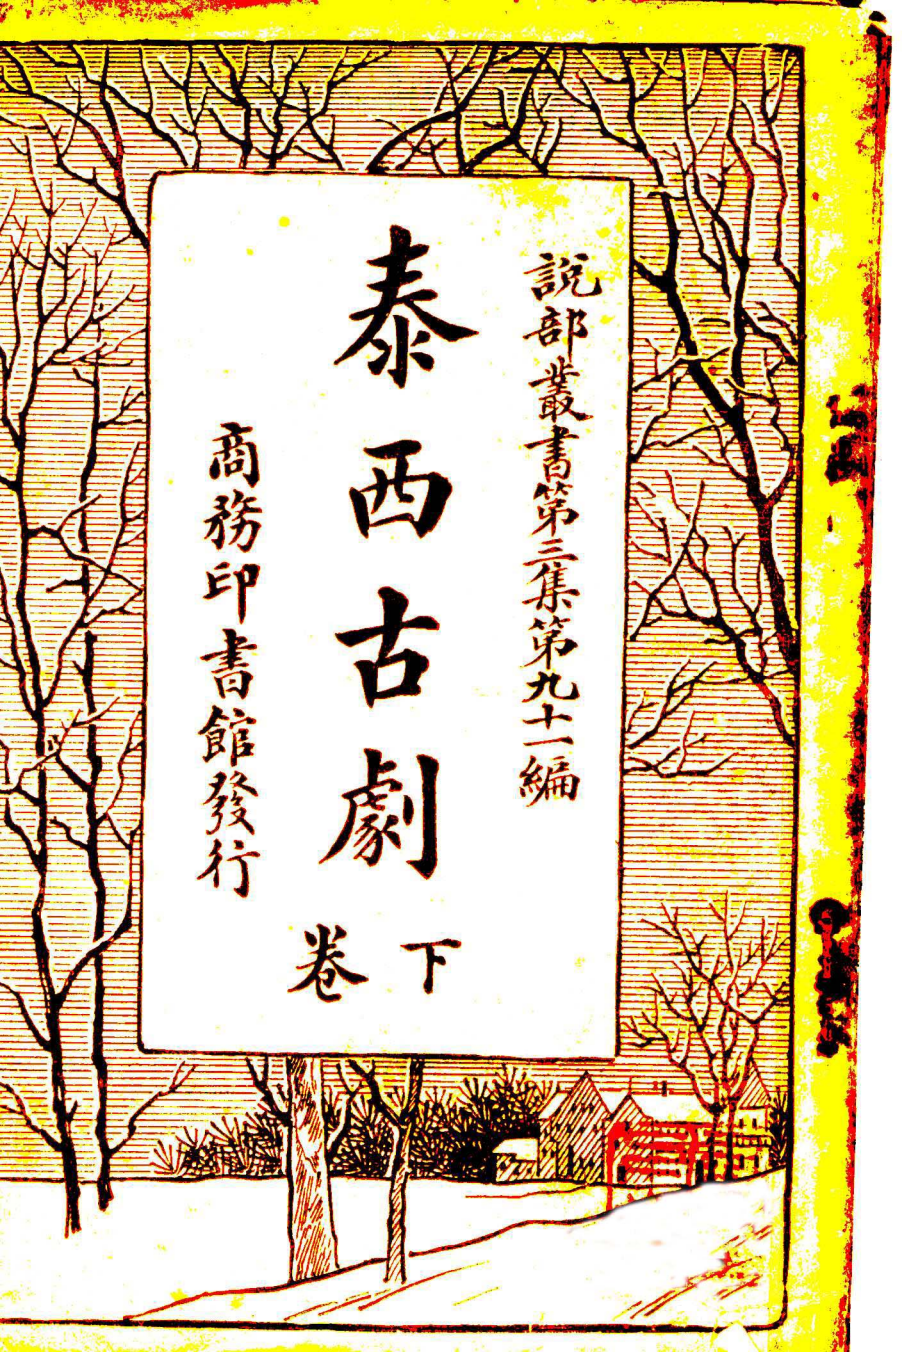 說部叢書第三集第九十一編
泰西古劇
下卷
商務印書館發行